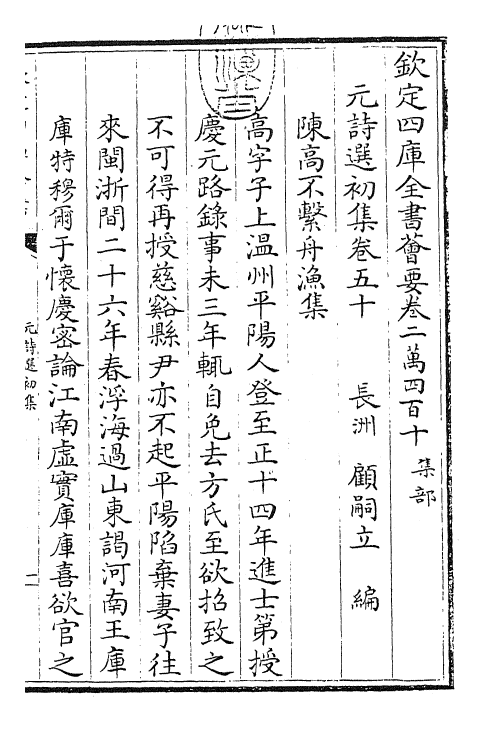 欽定四庫全書薈要卷二萬四百十 集部
元詩選初集卷五十 長洲 顧嗣立 編
陳高不繫舟漁集
高字子上溫州平陽人登至正十四年進士第授
慶元路錄事未三年輒自免去方氏至欲招致之
不可得再授慈谿縣尹亦不起平陽陷棄妻子往
來閩浙間二十六年春浮海過山東謁河南王庫
庫特穆爾于懷慶密論江南虛實庫庫喜欲官之
元詩選初集